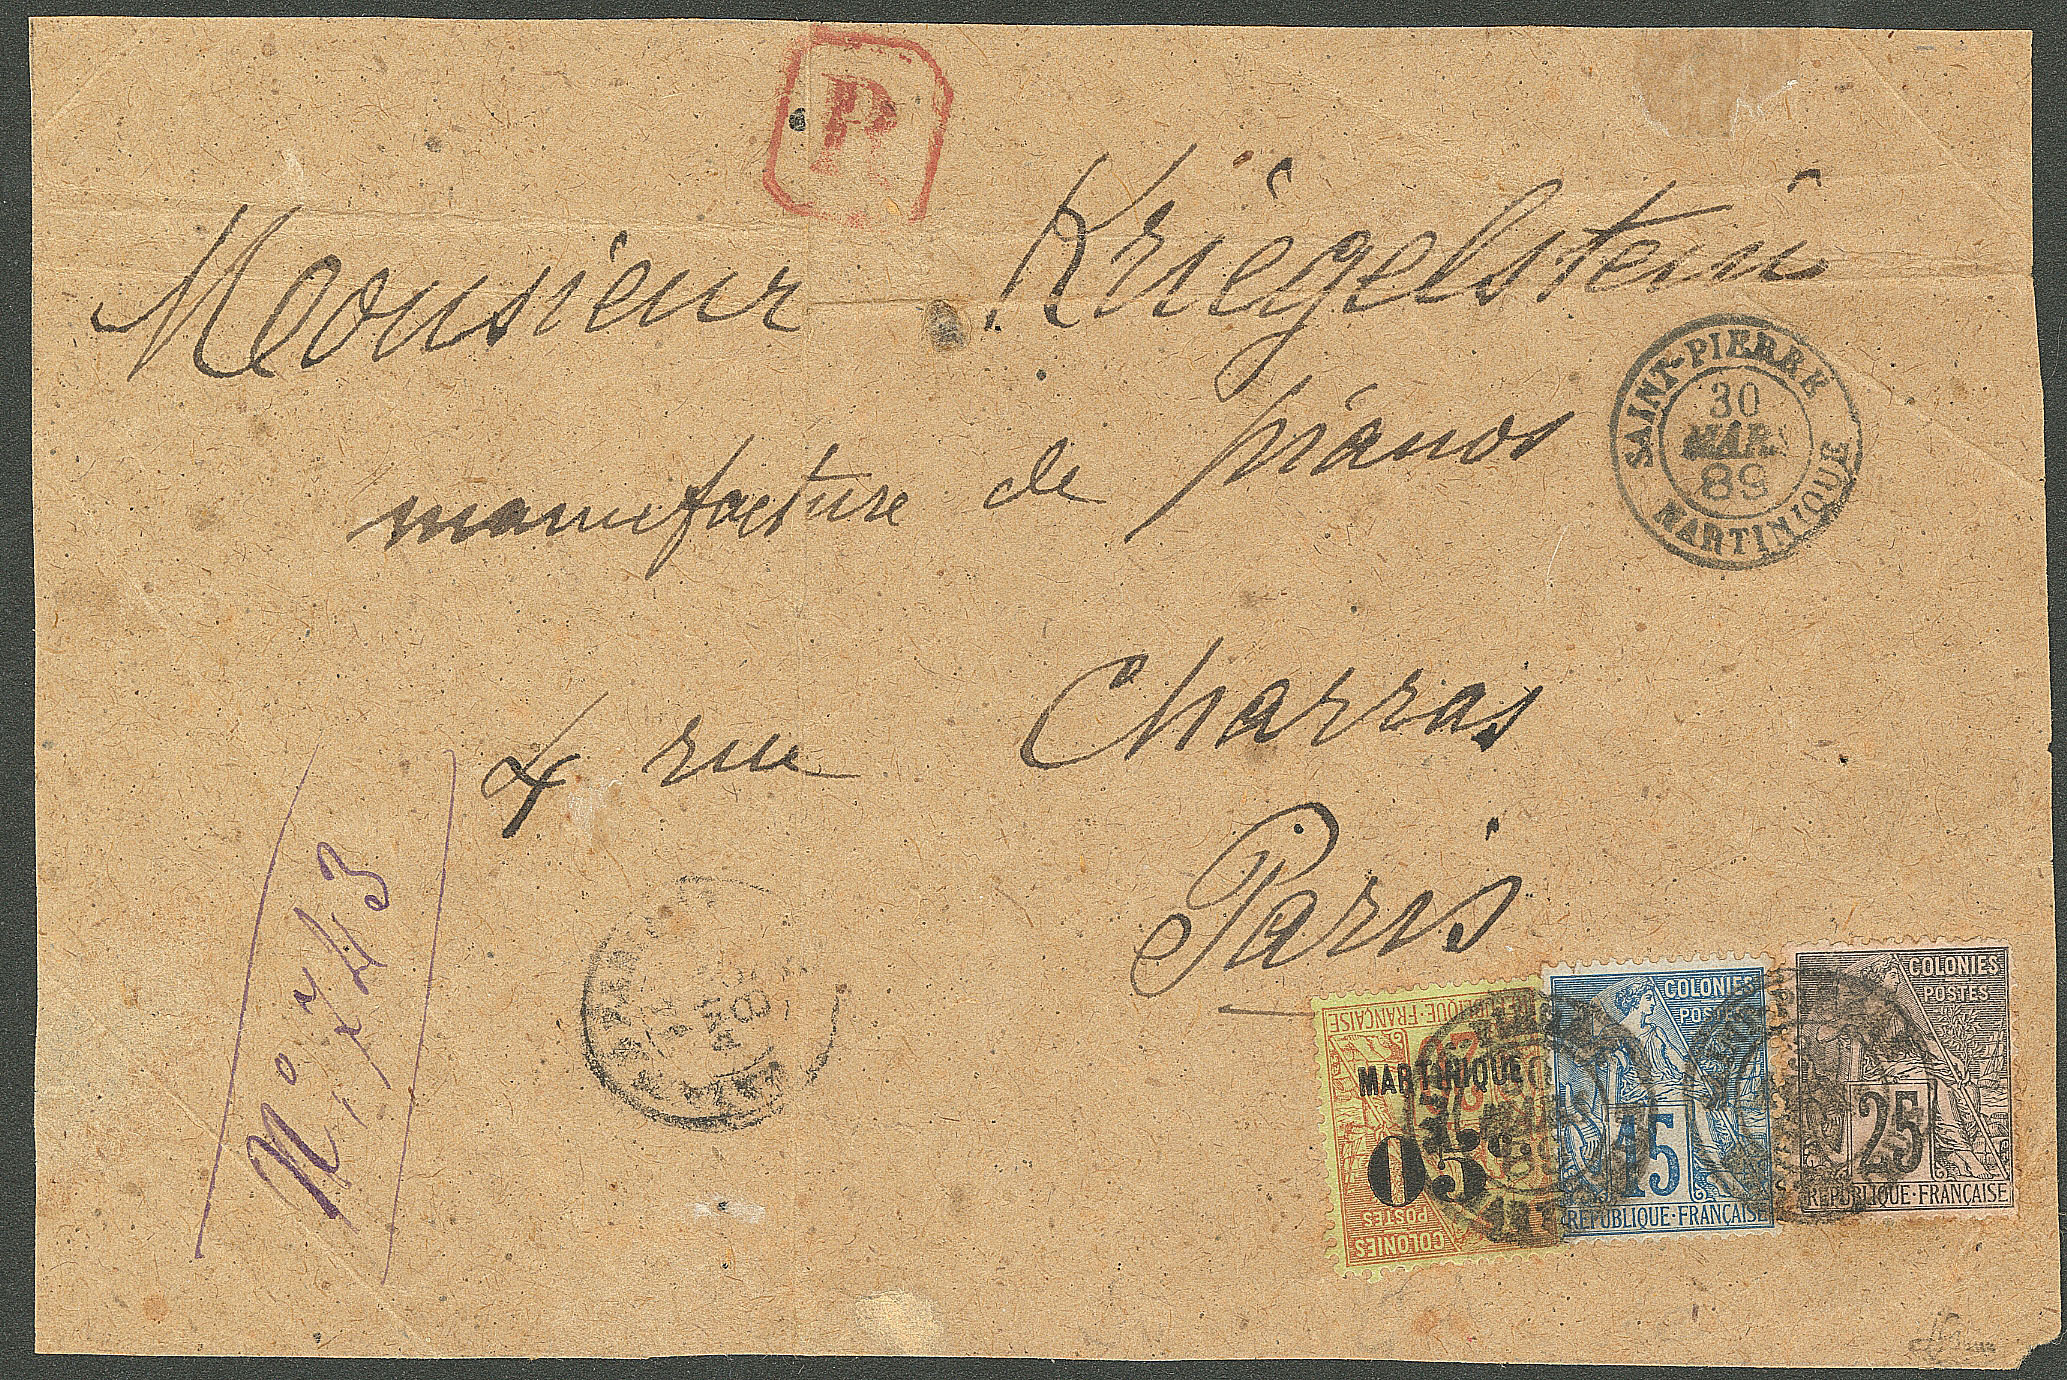 R
Monsieur Kriegelstein
manufacture de pianos
4 rue Charras
Paris
SAINT-PIERRE
30
MARS
89
MARTINIQUE
N° 743
RÉPUBLIQUE·FRANÇAISE
MARTINIQUE
05c.
POSTES
COLONIES
COLONIES
POSTES
15
RÉPUBLIQUE·FRANÇAISE
COLONIES
POSTES
25
RÉPUBLIQUE·FRANÇAISE